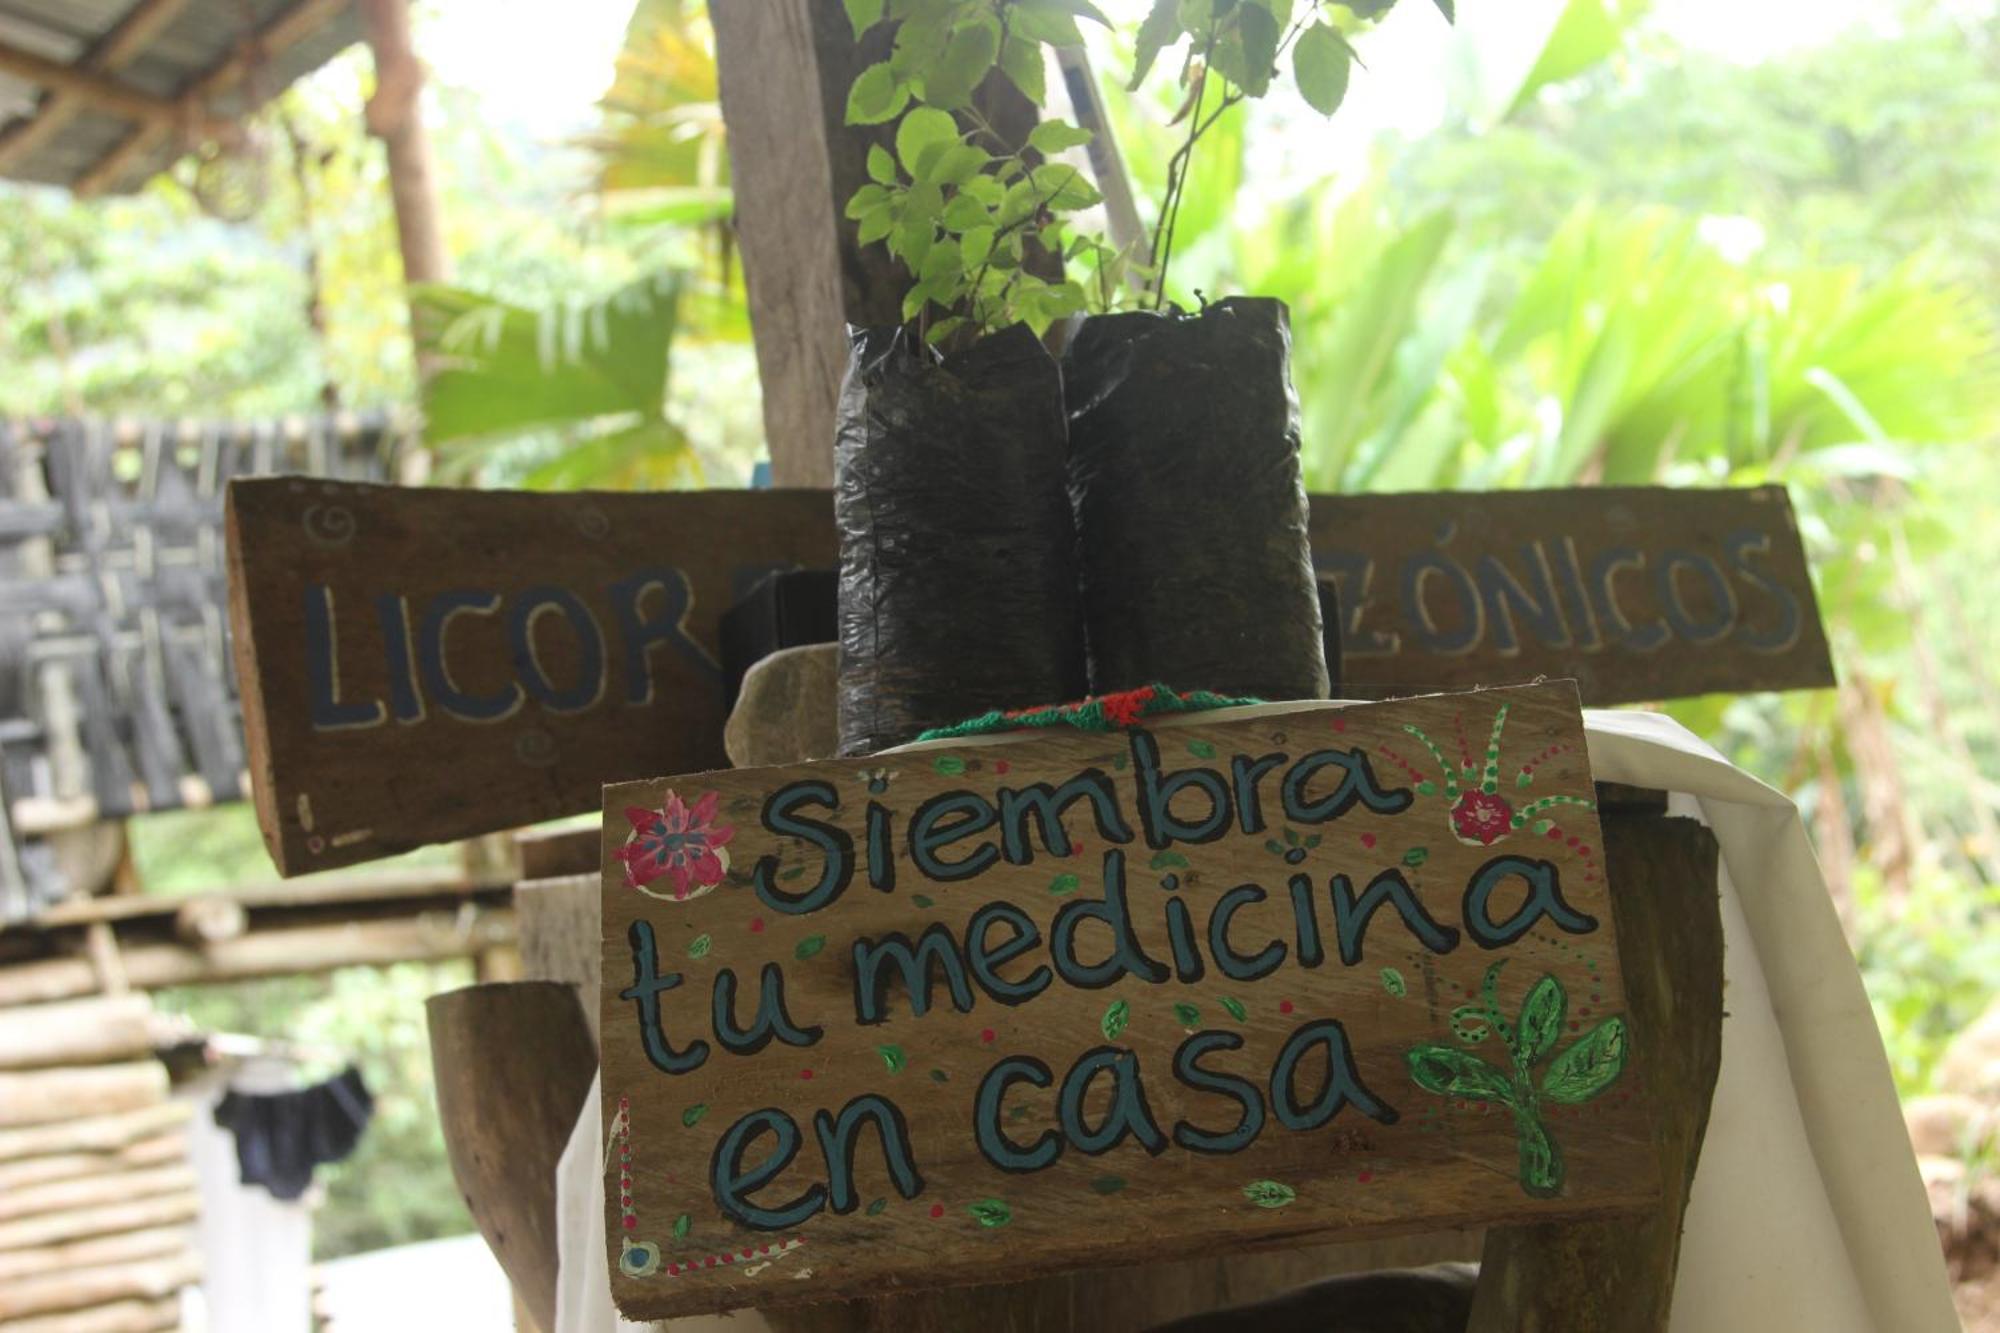 LICOR ZÓNICOS
Siembra
tu medicina
en casa